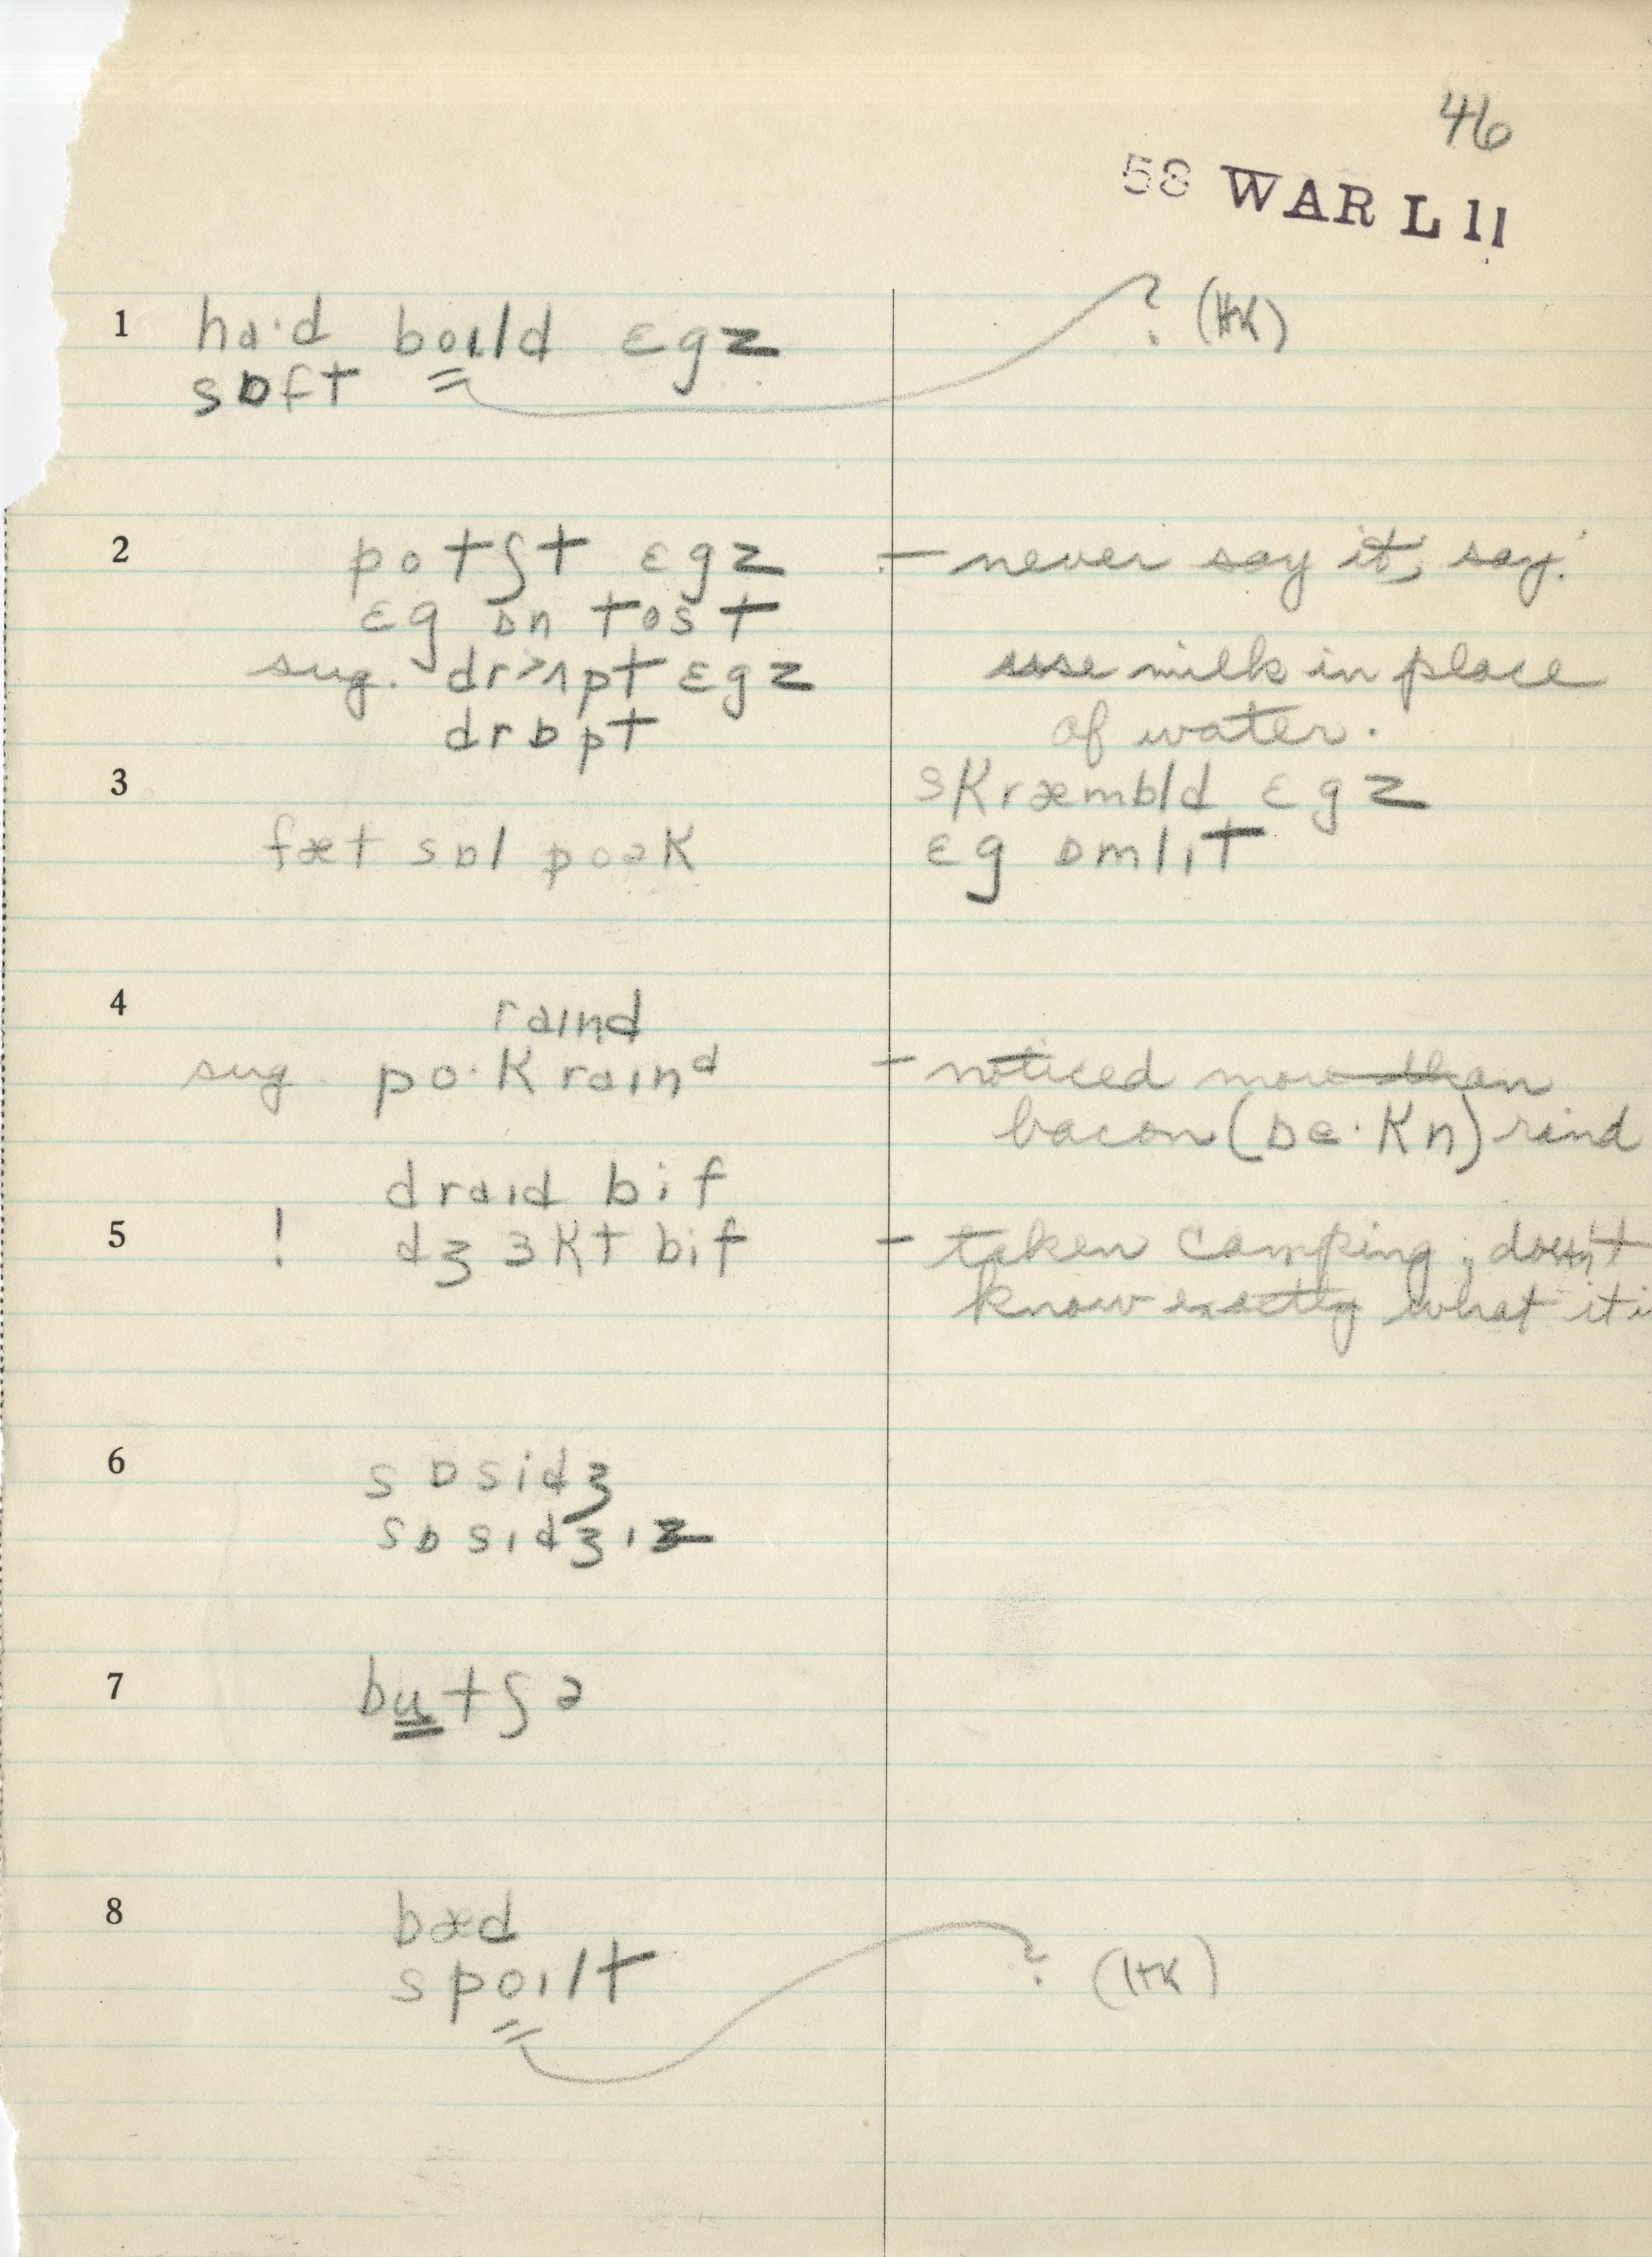 46
58 WAR L 11
1 ha·d bɔɪld ɛgz ? (HK)
sɒft
2 potʃt ɛgz — never say it, say:
ɛg ɒn tost
sug. dr>ʌpt ɛgz use milk in place
drɒpt of water.
3 skræmbld ɛgz
fæt sɒl poək ɛg ɒmlɪt
4 raɪnd
sug. po·k raɪnᵈ — noticed more than
bacon (be·kn) rind
draɪd bif
5 ! dʒɜkt bif — taken camping; doesn't
know exactly what it i
6 sɒsidʒ
sɒsɪdʒɪz
7 butʃə
8 bæd
spoɪlt ? (HK)